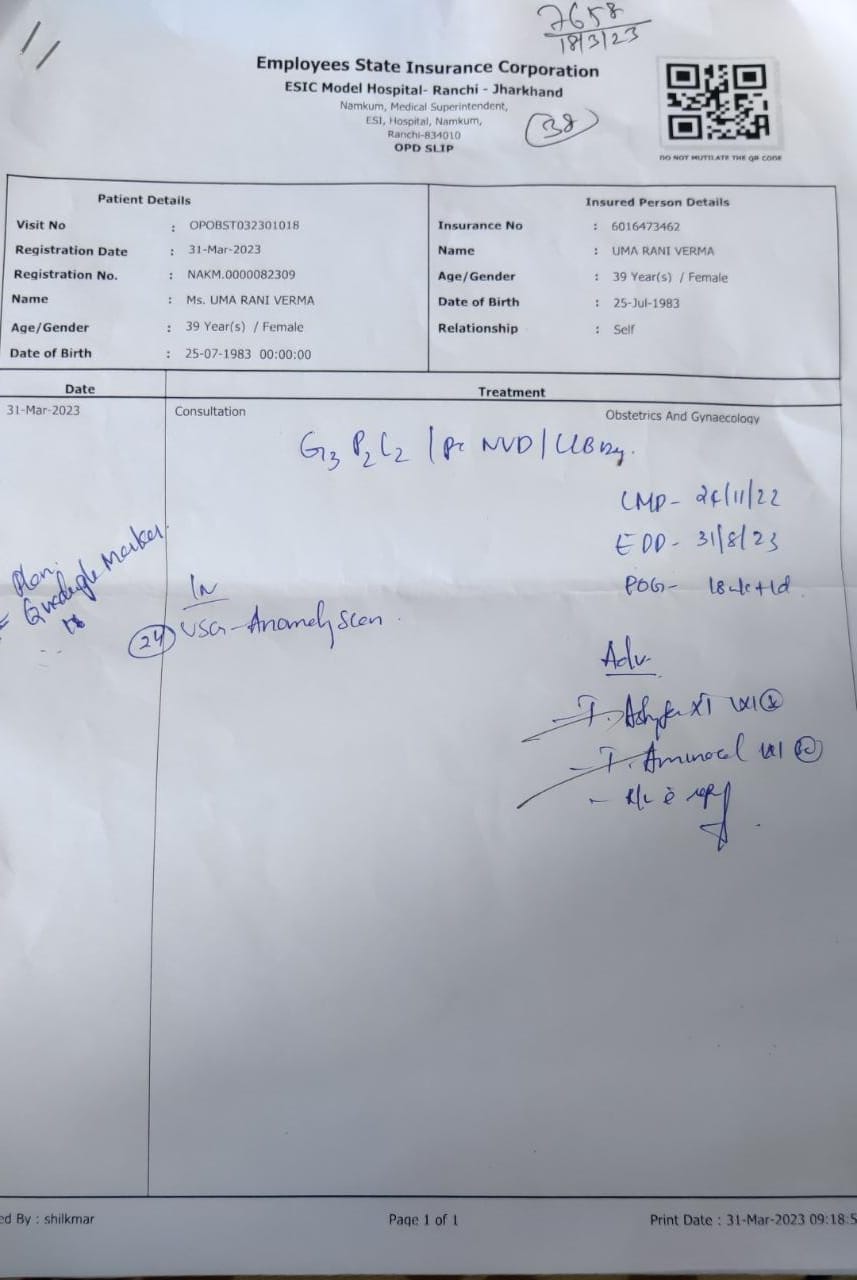 7658
18/3/23
Employees State Insurance Corporation
ESIC Model Hospital- Ranchi - Jharkhand
Namkum, Medical Superintendent,
ESI, Hospital, Namkum,
Ranchi-834010
OPD SLIP
38
DO NOT MUTILATE THE QR CODE
Patient Details
Visit No : OPOBST032301018
Registration Date : 31-Mar-2023
Registration No. : NAKM.0000082309
Name : Ms. UMA RANI VERMA
Age/Gender : 39 Year(s) / Female
Date of Birth : 25-07-1983 00:00:00
Insured Person Details
Insurance No : 6016473462
Name : UMA RANI VERMA
Age/Gender : 39 Year(s) / Female
Date of Birth : 25-Jul-1983
Relationship : Self
Date Treatment
31-Mar-2023 Consultation Obstetrics And Gynaecology
G3 P2 L2 / Pr NVD /
LMP- 24/11/22
EDD- 31/8/23
POG- 18wk+1d
Plan:
Quadruple Marker
24 USG-Anomaly Scan
Adv-
- T. XT
- T.
-
ed By : shilkmar Page 1 of 1 Print Date : 31-Mar-2023 09:18:5